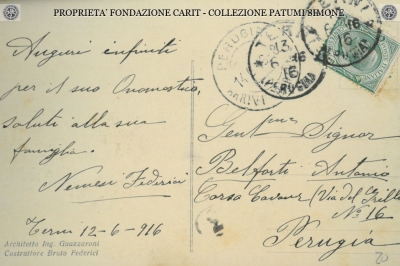 PROPRIETA' FONDAZIONE CARIT - COLLEZIONE PATUMI SIMONE
Auguri infiniti
per il suo Onomastico,
saluti alla sua
famiglia.
Nemesi Federici
Terni 12-6-916
Architetto Ing. Guazzaroni
Costruttore Bruto Federici
PERUGIA
ARRIVI
TERNI
(PERUGIA)
Gent.mo Signor
Belforti Antonio
Corso Cavour (Via del Grillo
No 16
Perugia
20